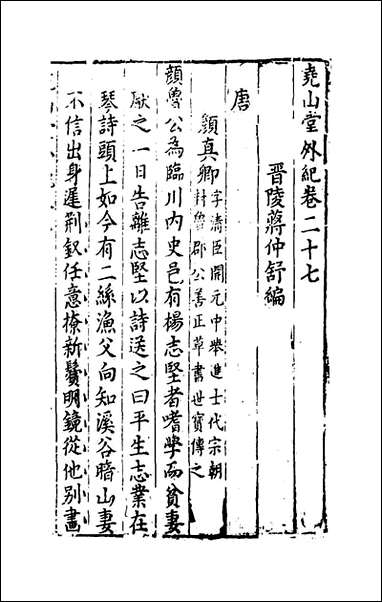 堯山堂外紀卷二十七
晋陵蔣仲舒編
唐
顏真卿字清臣開元中舉進士代宗朝
封魯郡公善正草書世寶傳之
顏魯公為臨川内史邑有楊志堅者嗜學而貧妻
厭之一日告離志堅以詩送之曰平生志業在
琴詩頭上如今有二絲漁父向知溪谷暗山妻
不信出身遲荆釵任意撩新鬢明鏡從他别畫